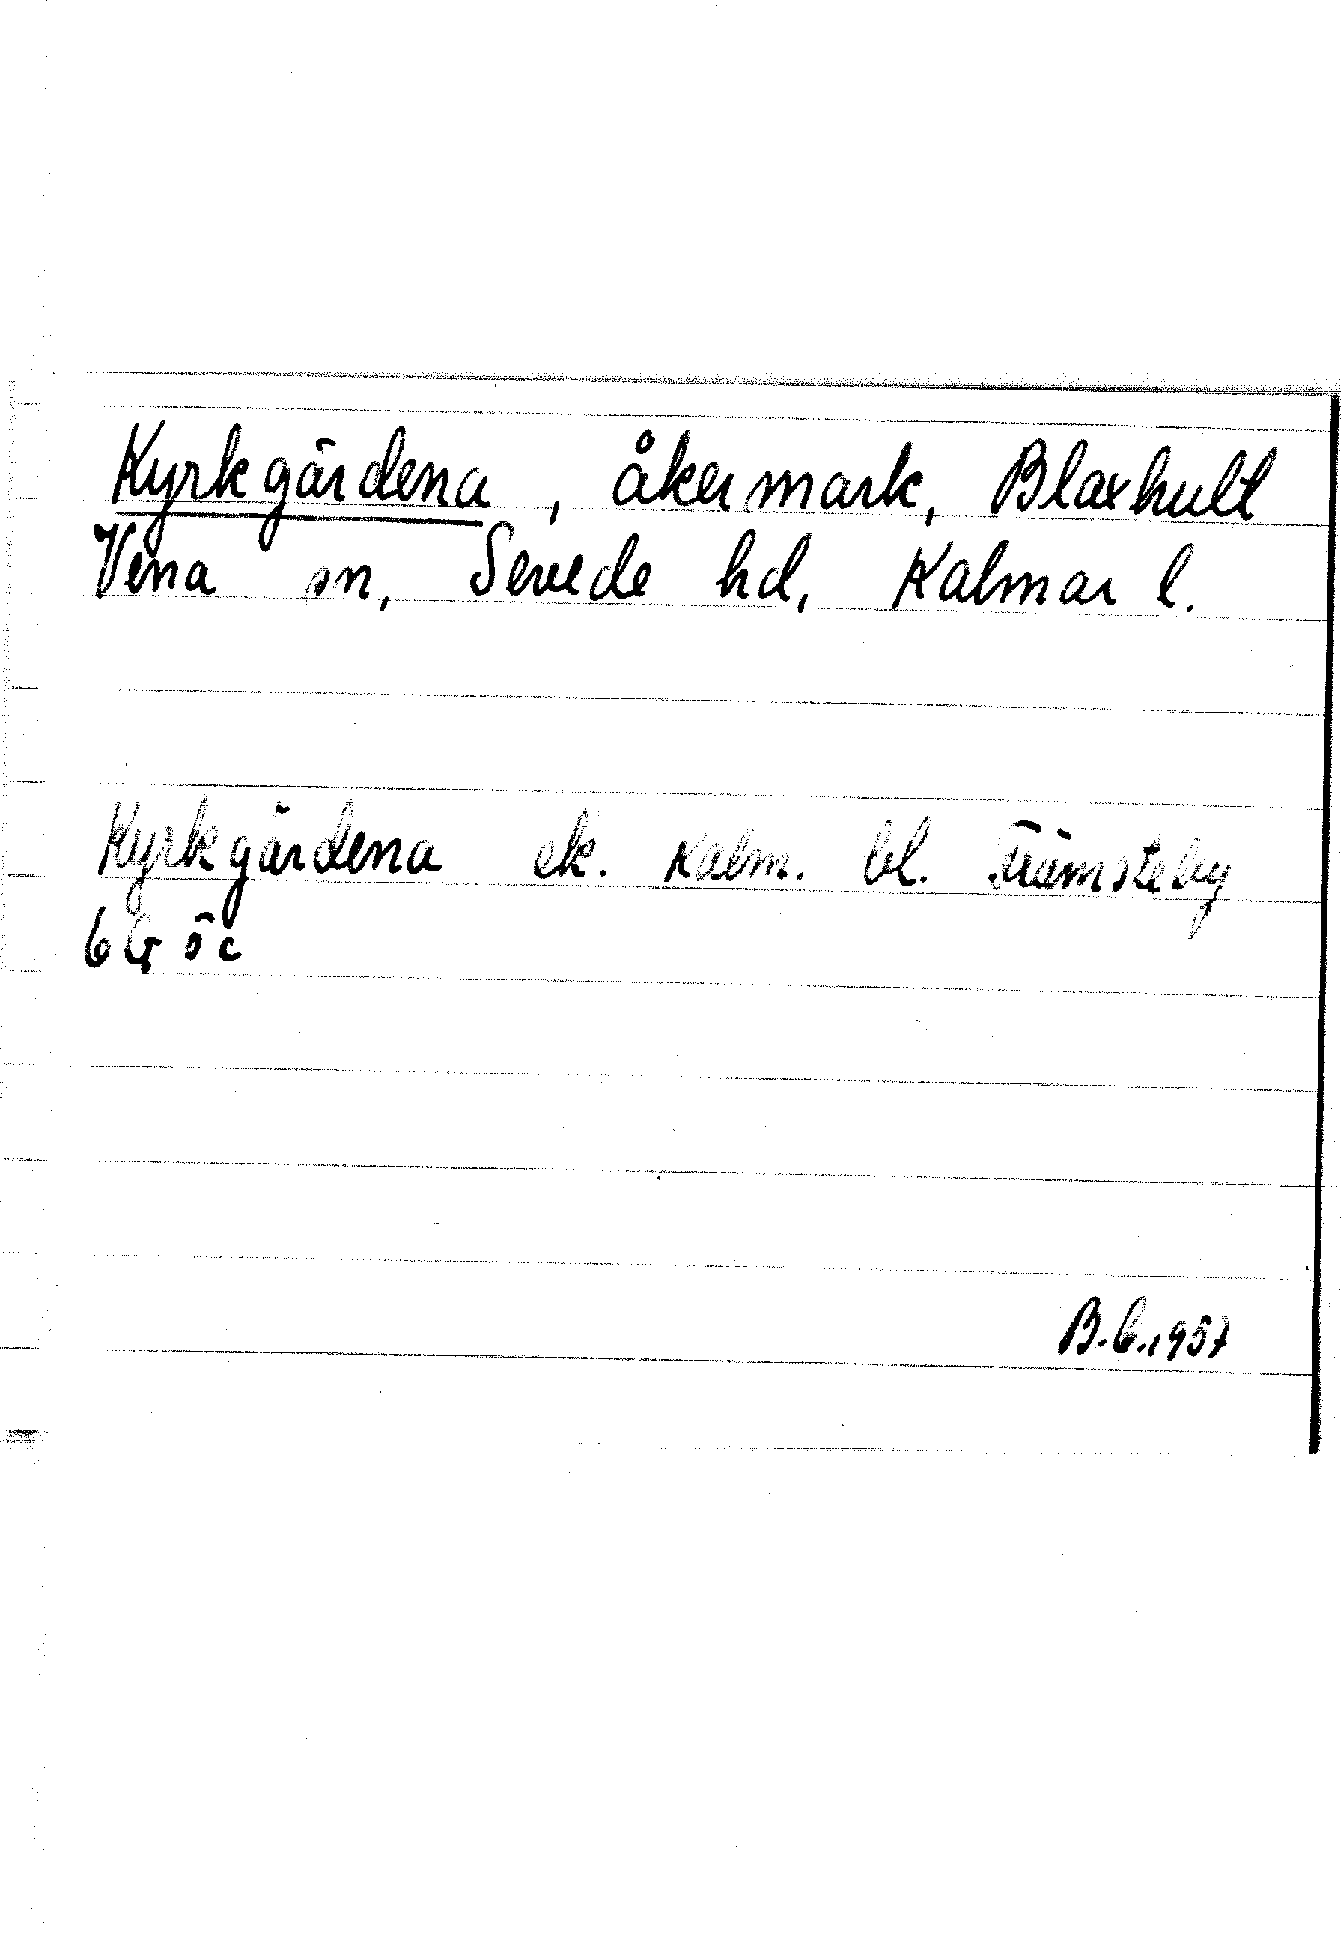 Kyrkgärdena, åkermark, Blaxhult
Vena sn, Sevede hd, Kalmar l.
Kyrkgärdena ek. Kalm. bl. Trämsteby
6 G ö c
B.G.1957